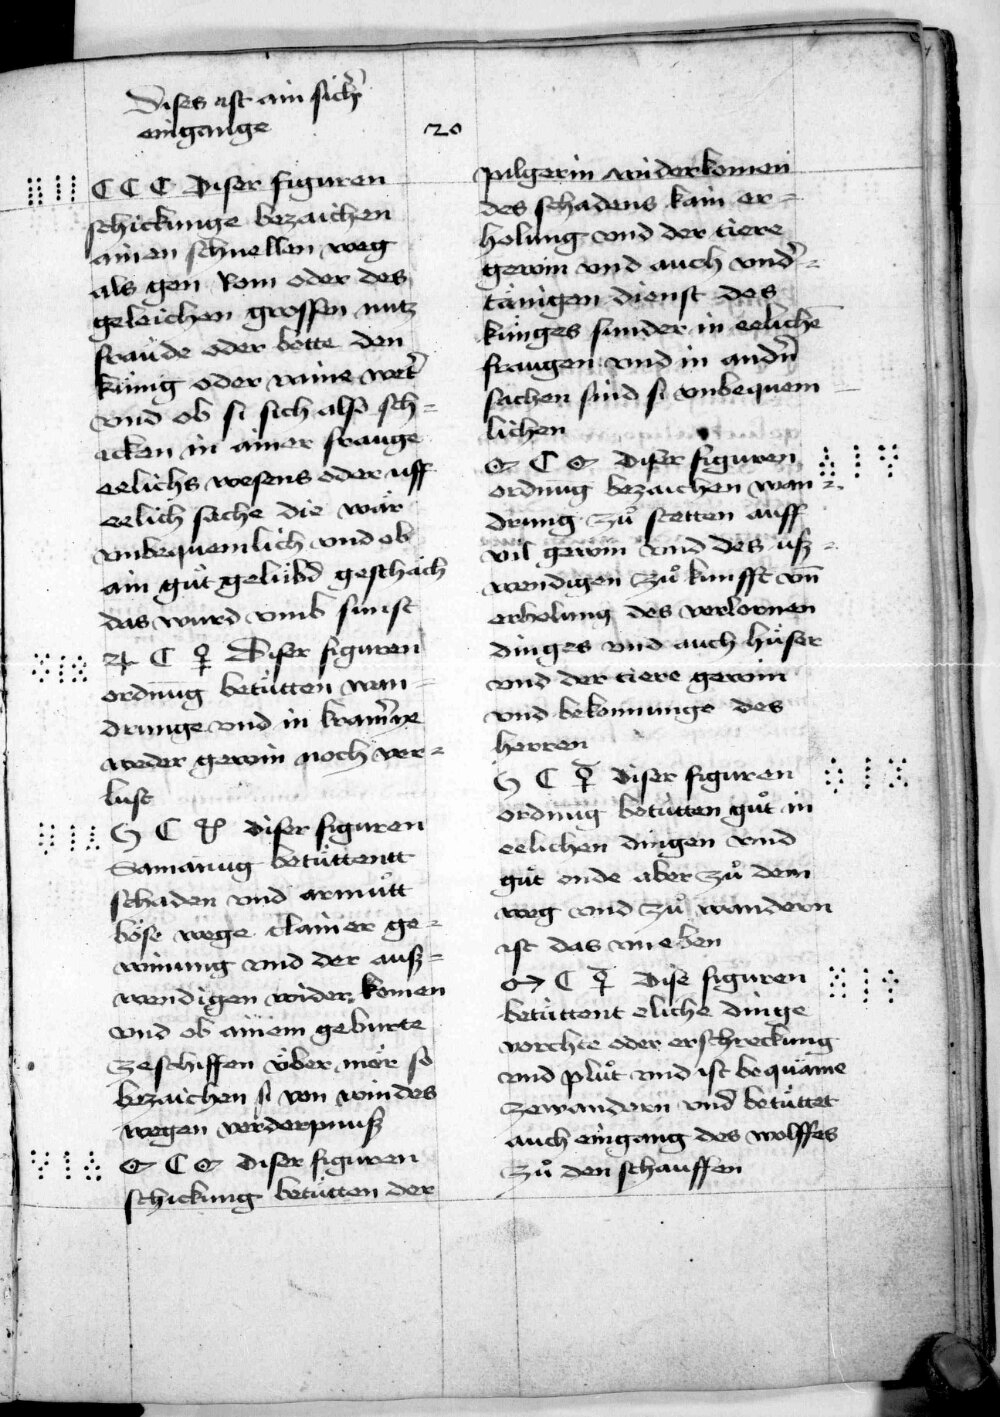 Dises ist ain sich'
eingange
20
☾ ☾ ☾ Diser figuren
schickunge bezaichen
ainen schnellen weg
als gen Rom oder des
geleichen grossen nutz
fraüde oder bette den
künig oder
vnd ob si sich also sch=
icken in ainer frauge
eelichs wesens oder uff
eelich sache die wär
vnbequemlich vnd ob
ain güt gelübd geschäch
das wurd vmb sunst
♃ ☾ ♀ Diser figuren
ordnūg betütten wan=
drunge vnd in
weder gewin noch ver=
lust
♄ ☾ Diser figuren
Samānūg betüttentt
schaden vnd armůtt
böse wege clainer ge=
winnung vnd der auß=
wendigen wider komen
vnd ob ainem geburte
ze schiffen über mer so
bezaichen si von windes
wegen verderpnuß
☾ Diser figuren
schickung betütten der
pilgerin widerkomen
des schadens kain er=
holung vnd der tiere
gewin vnd auch vnd'=
tänigen dienst des
künges sunder in eelichē
fraugen vnd in andn̄
sachen sind si vnbequem
lichen
☾ Diser figuren
ordnūg bezaichen wan=
drung zů stetten auff
vil gewin vnd des uß=
wendigen zů kunfft vn̄
erholung des verlornen
dinges vnd auch hüser
vnd der tiere gewin
vnd bekomunge des
herren
♄ ☾ ♀ Diser figuren
ordnug betütten gůt in
eelichen dingen vnd
güt ende aber zů dem
weg vnd zů wandern
ist das vneben
☾ ♀ Dise figuren
betüttent eliche dinge
vorchte oder erschreckung
vnd plůt vnd ist bequäme
zewandern vnd betüttet
auch eingang des wolffes
zů den schauffen